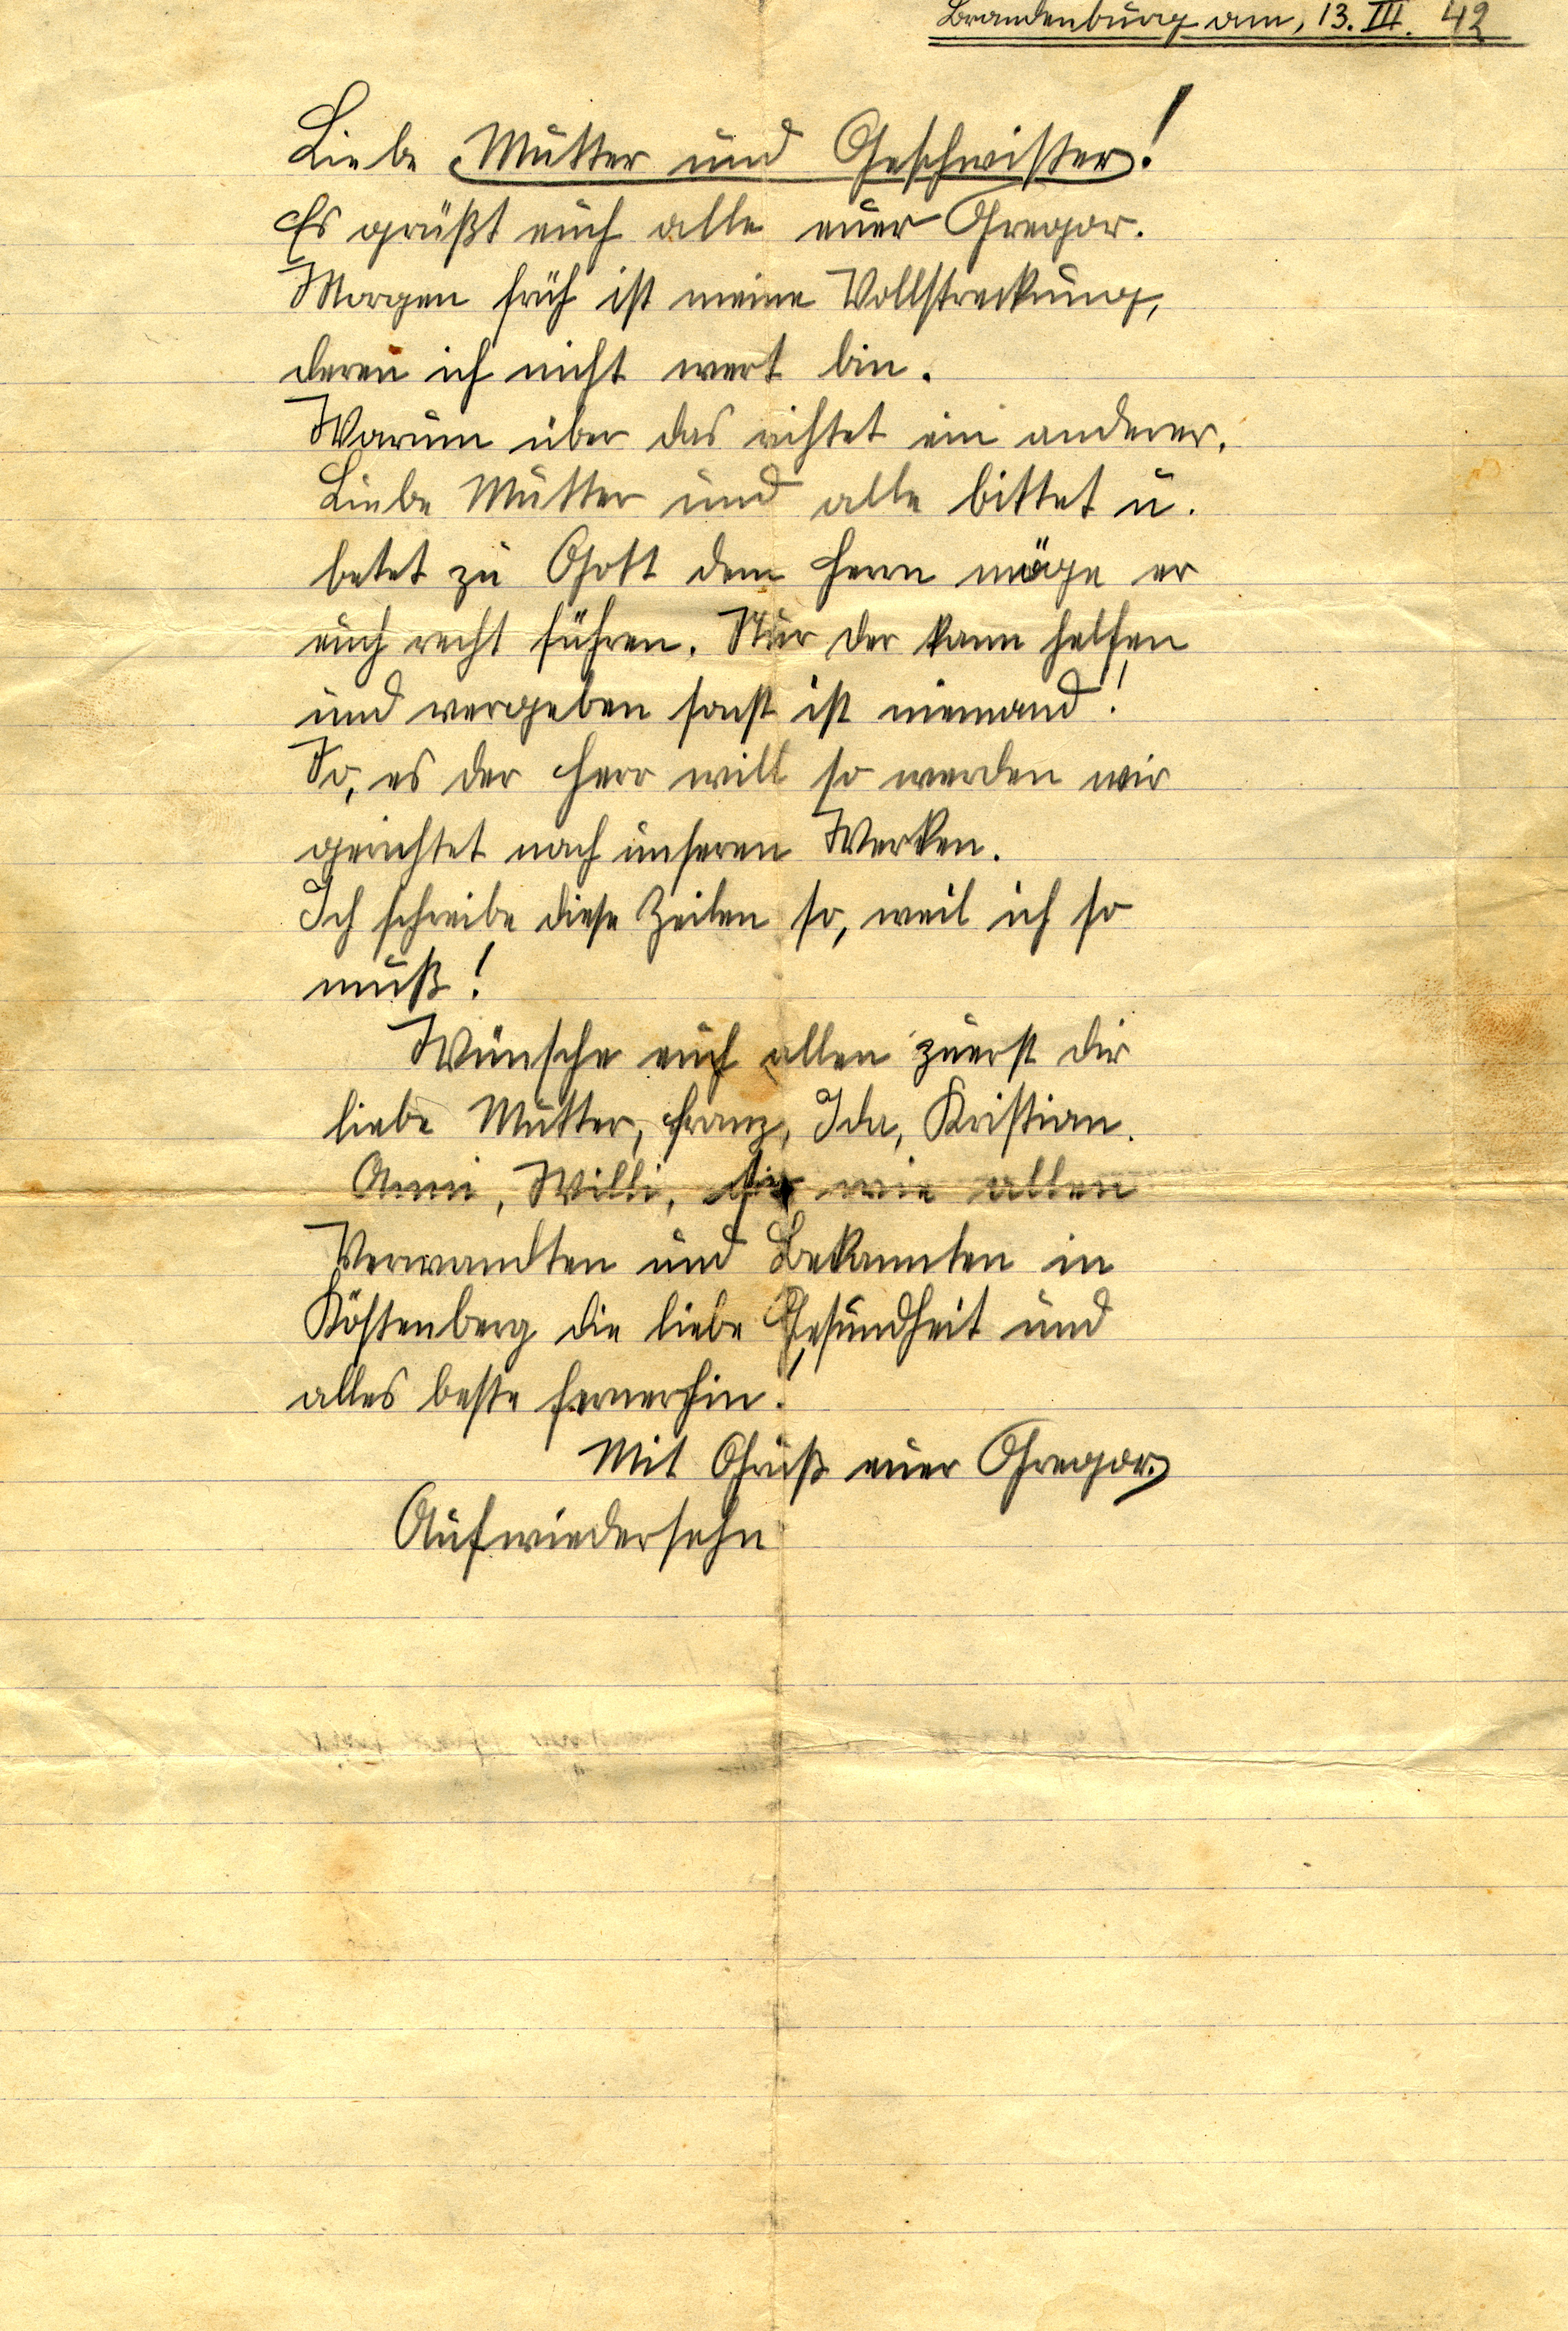 Brandenburg am, 13. III. 42
Liebe Mutter und Geschwister!
Es grüßt euch alle euer Gregor.
Morgen früh ist meine Vollstreckung,
deren ich nicht wert bin.
Warum über das richtet ein anderer.
Liebe Mutter und alle bittet u.
betet zu Gott dem Herrn möge er
euch recht führen. Nur der kann helfen
und vergeben sonst ist niemand!
So, es der Herr will so werden wir
gerichtet nach unseren Werken.
Ich schreibe diese Zeilen so, weil ich so
muß!
Wünsche euch allen zuerst dir
liebe Mutter, Franz, Ida, Kristian.
Anni, Willi, wie allen
Verwandten und Bekannten in
Köstenberg die liebe Gesundheit und
alles beste fernerhin!
Mit Gruß euer Gregor.
Aufwiedersehn